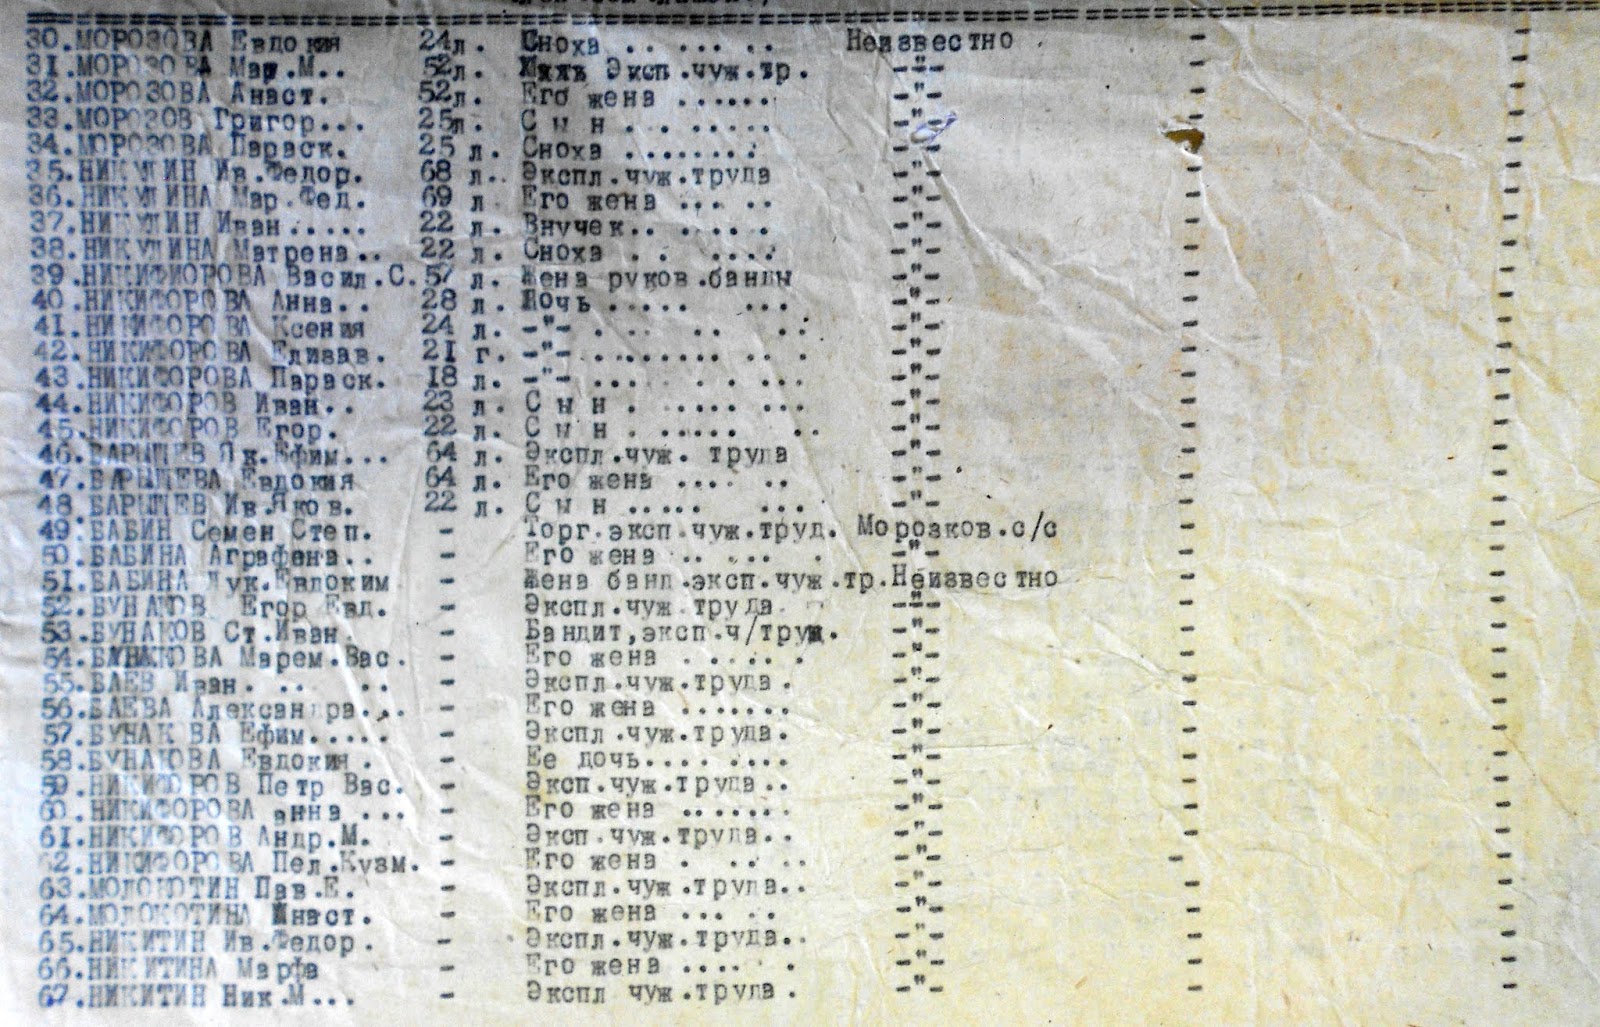 30.МОРОЗОВА Евдокия 24л. Сноха . . . . . . . Неизвестно - -
31.МОРОЗОВА Мар.М.. 52л. Эксп.чуж.тр. -"- - -
32.МОРОЗОВА Анаст. 52л. Его жена ...... -"- - -
33.МОРОЗОВ Григор... 25л. С ы н . . ..... -"- -
34.МОРОЗОВА Параск. 25 л. Сноха ........ -"- - -
35.НИКУЛИН Ив.Федор. 68 л. Экспл.чуж.труда -"- - -
36.НИКУЛИНА Мар.Фед. 69 л. Его жена ... .. -"- - -
37.НИКУЛИН Иван..... 22 л. Внучек.. . .... -"- - -
38.НИКУЛИНА Матрена.. 22 л. Сноха . . .... -"- - -
39.НИКИФИОРОВА Васил.С.57 л. Жена руков.банды -"- - -
40.НИКИФОРОВА Анна.. 28 л. Дочь ..... ... -"- - -
41.НИКИФОРОВА Ксения 24 л. -"- . ... .. .. -"- - -
42.НИКИФОРОВА Елизав. 21 г. -"- ........ .. . -"- - -
43.НИКИФОРОВА Параск. 18 л. -"- ... . . ... -"- - -
44.НИКИФОРОВ Иван.. 23 л. С ы н . ..... ... -"- - -
45.НИКИФОРОВ Егор. 22 л. С ы н . ..... .. -"- - -
46.БАРЫШЕВ Як.Ефим... 64 л. Экспл.чуж. труда -"- - -
47.БАРЫШЕВА Евдокия 64 л. Его жена .... .. -"- - -
48.БАРЫШЕВ Ив.Яков. 22 л. С ы н ..... ... -"- - -
49.БАБИН Семен Степ. - Торг.эксп.чуж.труд. Морозков.с/с - -
50.БАБИНА Аграфена.. - Его жена .. .. . . -"- - -
51.БАБИНА Лук.Евдоким - Жена банд.эксп.чуж.тр.Неизвестно - -
52.БУНАКОВ Егор Евд. - Экспл.чуж.труда -"- - -
53.БУНАКОВ Ст.Иван. - Бандит,эксп.ч/труд. -"- - -
54.БУНАКОВА Марем.Вас. - Его жена . . ... . -"- - -
55.БАЕВ Иван. .. .. - Экспл.чуж.труда. -"- - -
56.БАЕВА Александра... - Его жена ....... -"- - -
57.БУНАК ВА Ефим..... - Экспл.чуж.труда. -"- - -
58.БУНАКОВА Евдокия . - Ее дочь.... .... -"- - -
59.НИКИФОРОВ Петр Вас. - Эксп.чуж.труда.. -"- - -
60.НИКИФОРОВА анна ... - Его жена ....... -"- - -
61.НИКИФОРОВ Андр.М. - Эксп.чуж.труда.. -"- - -
62.НИКИФОРОВА Пел.Кузм. - Его жена . .. .. -"- - -
63.МОЛОКОТИН Пав.Е. - Экспл.чуж.труда.. -"- - -
64.МОЛОКОТИНА Анаст. - Его жена ... .. -"- - -
65.НИКИТИН Ив.Федор. - Экспл.чуж.труда.. -"- - -
66.НИКИТИНА Марфа - Его жена .... . -"- - -
67.НИКИТИН Ник.М... - Экспл чуж.труда. -"- - -